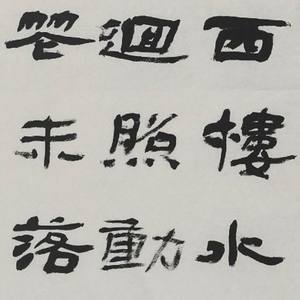 西樓水
迴照動
未落